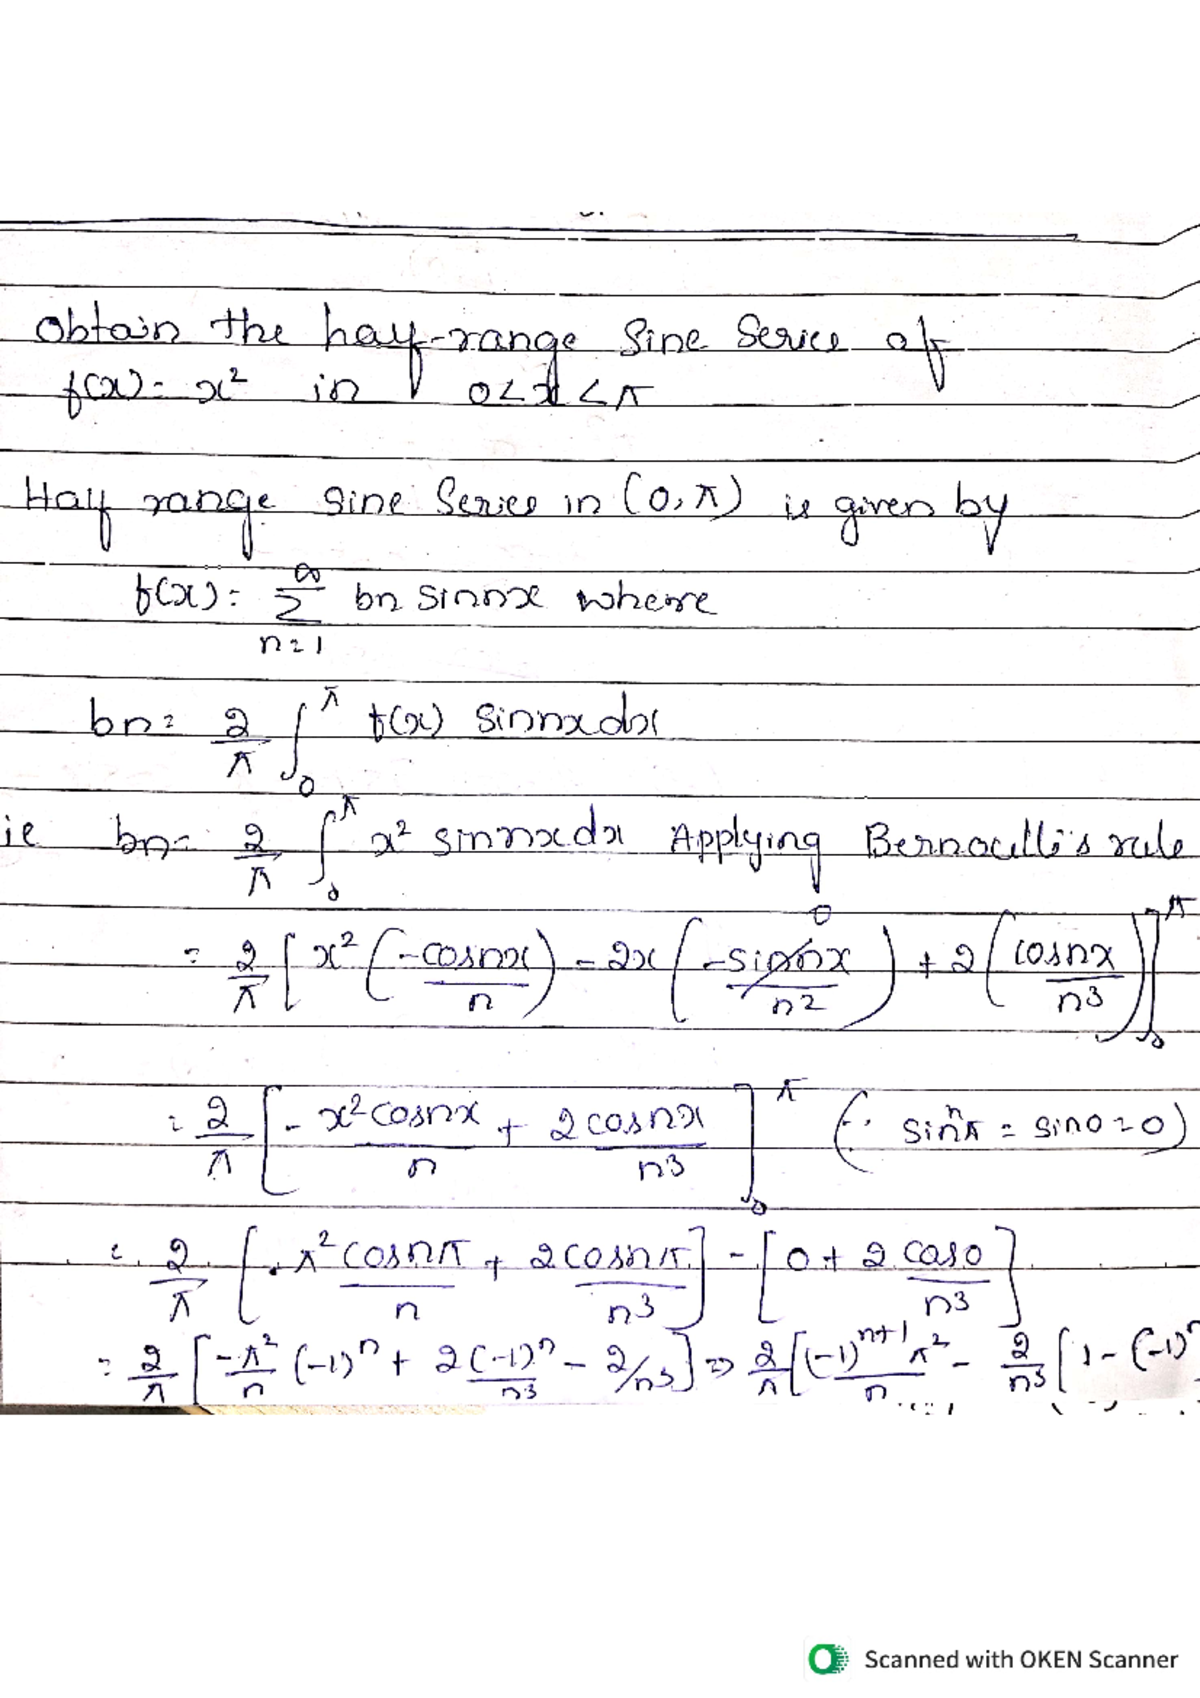 Obtain the half-range Sine Series of
f(x) = x² in 0 < x < π
Half range sine Series in (0, π) is given by
f(x) = ∞ Σ n=1 bn sin nx where
bn = 2/π ∫₀^π f(x) sin nx dx
ie bn = 2/π ∫₀^π x² sin nx dx Applying Bernoulli's rule
= 2/π [x² (-cos nx / n) - 2x (-sin nx / n²) 0 + 2 (cos nx / n³)]₀^π
= 2/π [- x² cos nx / n + 2 cos nx / n³]₀^π (∵ sin nπ = sin 0 = 0)
= 2/π [- π² cos nπ / n + 2 cos nπ / n³] - [0 + 2 cos 0 / n³]
= 2/π [-π²/n (-1)ⁿ + 2(-1)ⁿ/n³ - 2/n³] ⇒ 2/π [(-1)ⁿ⁺¹ π² / n - 2/n³ [1 - (-1)ⁿ
Scanned with OKEN Scanner